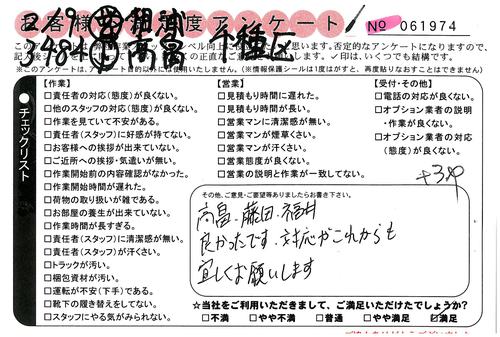 お客様満足度アンケート
№ 061974
千種区
このアンケートは
否定的なアンケートになりますので、
✓印は、いくつでも結構です。
※このアンケートは、アンケート目的以外には使用いたしません。（※情報保護シールは1度はがすと、再度貼りなおすことはできません）
チェックリスト
【作業】
□責任者の対応（態度）が良くない。
□他のスタッフの対応（態度）が良くない。
□作業を見ていて不安がある。
□責任者（スタッフ）に好感が持てない。
□お客様への挨拶が出来ていない。
□ご近所への挨拶・気遣いが無い。
□作業開始前の内容確認がなかった。
□作業開始時間が遅れた。
□荷物の取り扱いが雑である。
□お部屋の養生が出来ていない。
□作業時間が長すぎる。
□責任者（スタッフ）に清潔感が無い。
□責任者（スタッフ）が汗くさい。
□トラックが汚い。
□梱包資材が汚い。
□運転が不安（下手）である。
□靴下の履き替えをしてない。
□スタッフにやる気がみられない。
【営業】
□見積もり時間に遅れた。
□見積もり時間が長い。
□営業マンに清潔感が無い。
□営業マンが煙草くさい。
□営業マンが汗くさい。
□営業態度が良くない。
□営業の説明と作業が一致してない。
【受付・その他】
□電話の対応が良くない。
□オプション業者の説明
・作業が良くない。
□オプション業者の対応
（態度）が良くない。
その他、ご意見・ご要望等ありましたらお書き下さい。
高畠・藤田・福井
良かったです。対応がこれからも
宜しくお願いします
☆当社をご利用いただきまして、ご満足いただけたでしょうか？
□不満 □やや不満 □普通 □やや満足 ☑満足